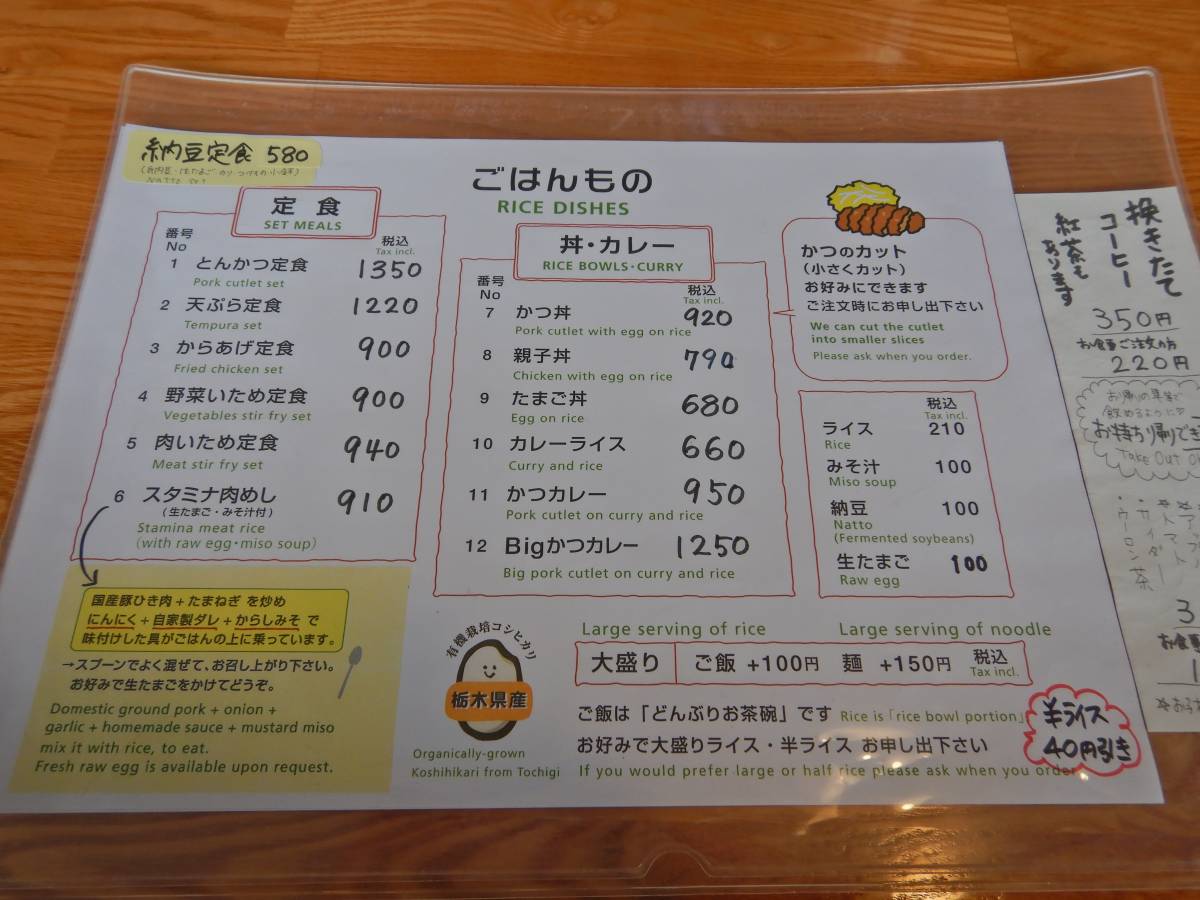 納豆定食 580
ごはんもの
RICE DISHES
定食
SET MEALS
番号
No
税込
Tax incl.
1 とんかつ定食 1350
Pork cutlet set
2 天ぷら定食 1220
Tempura set
3 からあげ定食 900
Fried chicken set
4 野菜いため定食 900
Vegetables stir fry set
5 肉いため定食 940
Meat stir fry set
6 スタミナ肉めし 910
(生たまご・みそ汁付)
Stamina meat rice
(with raw egg・miso soup)
国産豚ひき肉+たまねぎ を炒め
にんにく+自家製ダレ+からしみそ で
味付けした具がごはんの上に乗っています。
→スプーンでよく混ぜて、お召し上がり下さい。
お好みで生たまごをかけてどうぞ。
Domestic ground pork + onion +
garlic + homemade sauce + mustard miso
mix it with rice, to eat.
Fresh raw egg is available upon request.
丼・カレー
RICE BOWLS・CURRY
番号
No
税込
Tax incl.
7 かつ丼 920
Pork cutlet with egg on rice
8 親子丼 790
Chicken with egg on rice
9 たまご丼 680
Egg on rice
10 カレーライス 660
Curry and rice
11 かつカレー 950
Pork cutlet on curry and rice
12 Bigかつカレー 1250
Big pork cutlet on curry and rice
かつのカット
(小さくカット)
お好みにできます
ご注文時にお申し出下さい
We can cut the cutlet
into smaller slices
Please ask when you order.
税込
Tax incl.
ライス 210
Rice
みそ汁 100
Miso soup
納豆 100
Natto
(Fermented soybeans)
生たまご 100
Raw egg
有機栽培コシヒカリ
栃木県産
Organically-grown
Koshihikari from Tochigi
Large serving of rice Large serving of noodle
大盛り ご飯 +100円 麺 +150円 税込
Tax incl.
ご飯は「どんぶりお茶碗」です Rice is「rice bowl portion」
お好みで大盛りライス・半ライス お申し出下さい
If you would prefer large or half rice please ask when you order
半ライス
40円引き
換きたて
コーヒー
紅茶も
あります
350円
お食事ご注文の方
220円
飲めるように
お持ち帰りでき
Take Out
・サイダー
・ウーロン茶